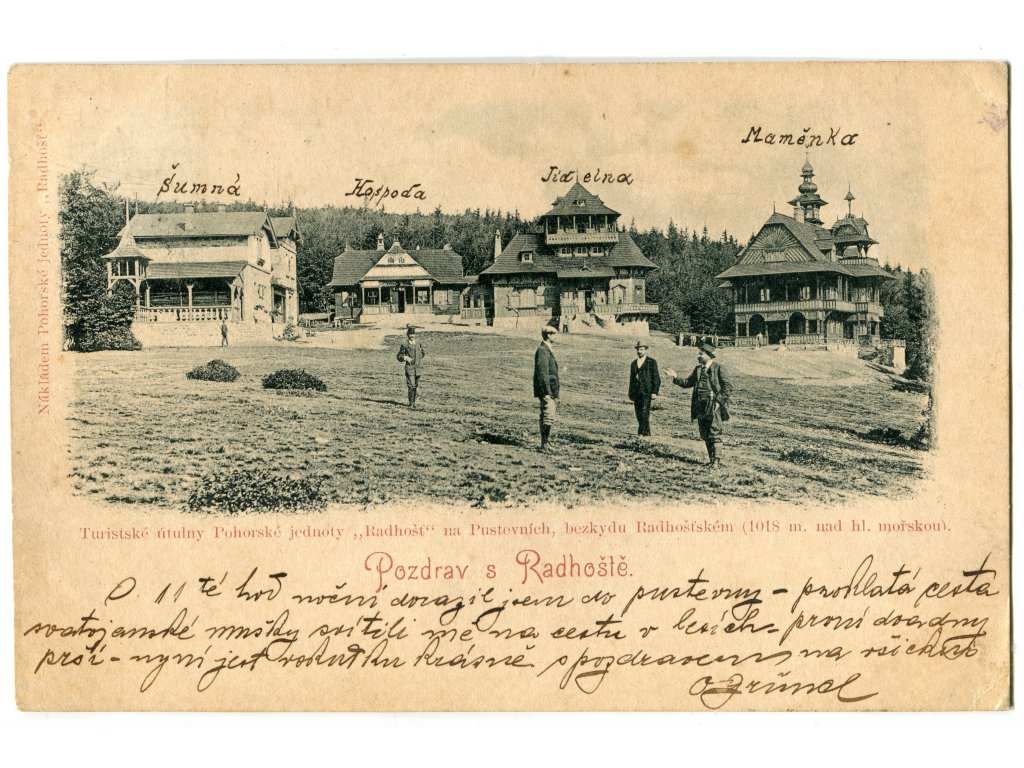 Nákladem Pohorské jednoty „Radhošť“
Šumná
Hospoda
Jídelna
Maměnka
Turistské útulny Pohorské jednoty „Radhošť“ na Pustevních, bezkydu Radhošťském (1018 m. nad hl. mořskou).
Pozdrav s Radhoště.
O 11té hod noční dorazil jsem do pustevny – proklatá cesta
svatojanské mušky svítili mě na cestu v lesích – první dva dny
prší – nyní jest krásně s pozdravem na všechny